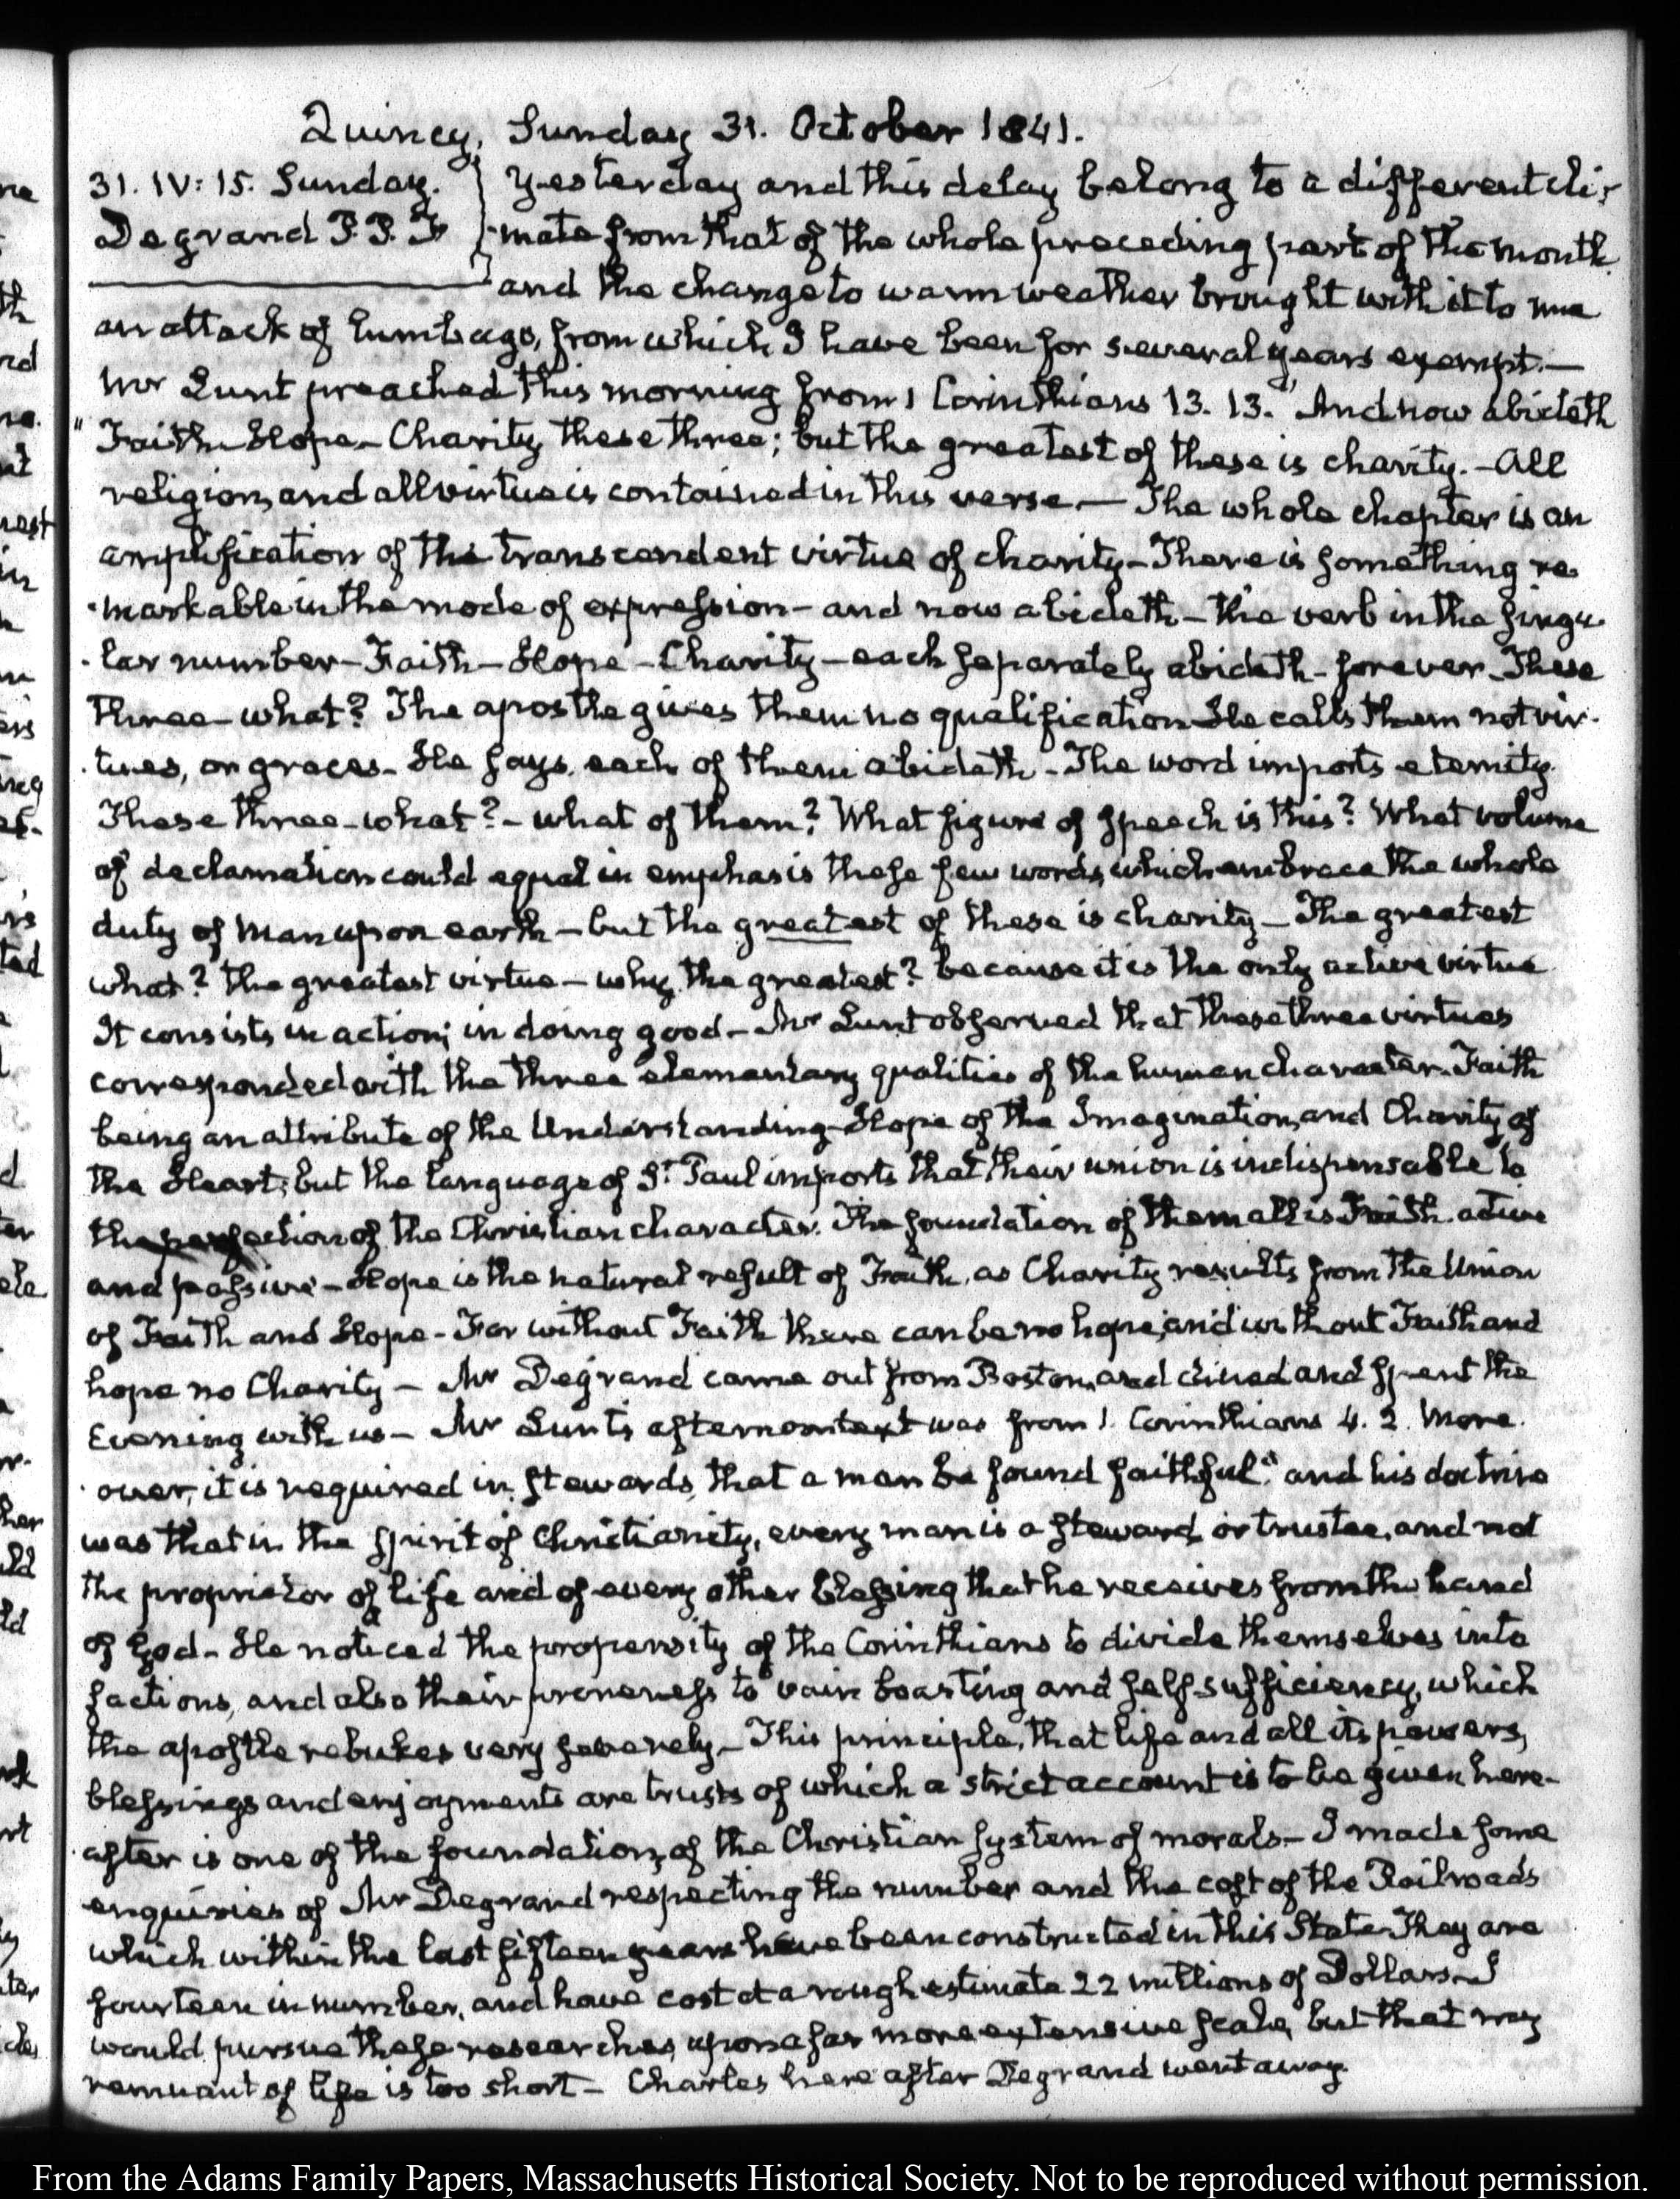 Quincy, Sunday 31. October 1841.
31. IV: 15. Sunday.
Degrand P. P. F
Yesterday and this delay belong to a different cli-
-mate from that of the whole preceding part of the month
and the change to warm weather brought with it to me
an attack of lumbago, from which I have been for several years exempt.—
Mr Lunt preached this morning from 1 Corinthians 13. 13. "And now abideth
"Faith Hope—Charity these three; but the greatest of these is charity.—All
religion, and all virtue is contained in this verse.— The whole chapter is an
amplification of the transcendent virtue of charity—There is something re
-markable in the mode of expression—and now abideth—the verb in the singu-
-lar number—Faith—Hope—Charity—each separately abideth—forever—These
three—what? The apostle gives them no qualification He calls them not vir-
-tues, or graces—He says, each of them abideth—The word imports eternity.
These three—what?—what of them? What figure of speech is this? What volume
of declamation could equal in emphasis these few words, which embrace the whole
duty of man upon earth—but the greatest of these is charity—The greatest
what? the greatest virtue—why the greatest? because it is the only active virtue
It consists in action; in doing good—Mr Lunt observed that these three virtues
corresponded with the three elementary qualities of the human character. Faith
being an attribute of the Understanding—Hope of the Imagination, and Charity of
the Heart; but the language of St. Paul imports that their union is indispensable to
the perfection of the Christian character. The foundation of them all is Faith. active
and passive—Hope is the natural result of Faith, as Charity results from the Union
of Faith and Hope—For without Faith there can be no hope, and without Faith and
hope no Charity— Mr Degrand came out from Boston, and dined and spent the
Evening with us— Mr Lunt's afternoon text was from 1. Corinthians 4. 2. More
-over, it is required in stewards, that a man be found faithful." and his doctrine
was that in the spirit of Christianity, every man is a steward or trustee, and not
the proprietor of life and of every other blessing that he receives from the hand
of God—He noticed the propensity of the Corinthians to divide themselves into
factions, and also their proneness to vain boasting and self-sufficiency, which
the apostle rebukes very severely—This principle, that life and all its powers,
blessings and enjoyments are trusts of which a strict account is to be given here-
-after is one of the foundations of the Christian system of morals—I made some
enquiries of Mr Degrand respecting the number and the cost of the Railroads
which within the last fifteen years have been constructed in this State They are
fourteen in number, and have cost at a rough estimate 22 millions of Dollars—I
would pursue these researches upon a far more extensive scale, but that my
remnant of life is too short— Charles here after Degrand went away
From the Adams Family Papers, Massachusetts Historical Society. Not to be reproduced without permission.